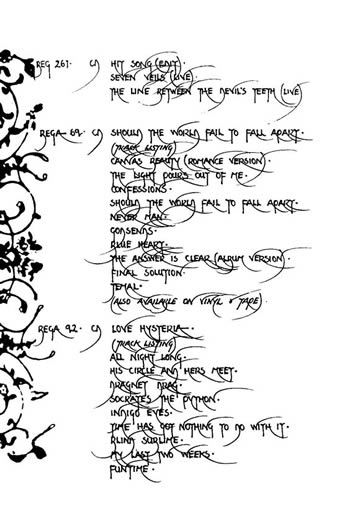 REG 261. CD HIT SONG (EDIT).
SEVEN VEILS (LIVE).
THE LINE BETWEEN THE DEVIL'S TEETH (LIVE)
REGA 69. CD SHOULD THE WORLD FAIL TO FALL APART.
(TRACK LISTING)
CANVAS BEAUTY (ROMANCE VERSION).
THE LIGHT POURS OUT OF ME.
CONFESSIONS.
SHOULD THE WORLD FAIL TO FALL APART.
NEVER MAN.
CONSENTS.
BLUE HEART.
THE ANSWER IS CLEAR (ALBUM VERSION).
FINAL SOLUTION.
TEMAL.
(ALSO AVAILABLE ON VINYL & TAPE).
REGA 92. CD LOVE HYSTERIA.
(TRACK LISTING)
ALL NIGHT LONG.
HIS CIRCLE AND HERS MEET.
DRAGNET DRAG.
SOCRATES THE PYTHON.
INDIGO EYES.
TIME HAS GOT NOTHING TO DO WITH IT.
BLIND SUBLIME.
MY LAST TWO WEEKS.
FUNTIME.